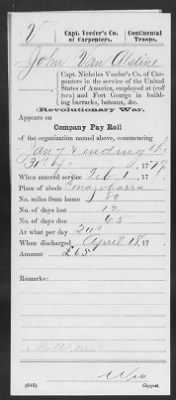 V | Capt. Veeder's Co. of Carpenters. | Continental Troops.
John Van Alstine
Capt. Nicholas Veeder's Co. of Car-
penters in the service of the United
States of America, employed at
and Fort George in build-
ing barracks, bateaux, &c.
(Revolutionary War.)
Appears on
Company Pay Roll
of the organization named above, commencing
Jany & ending the
177
When entered service Feb 1, 177
Place of abode
No. miles from home 80
No. of days lost 12
No. of days due 65
At what per day 20s
When discharged April 18, 177
Amount £65
Remarks:
Copyist.